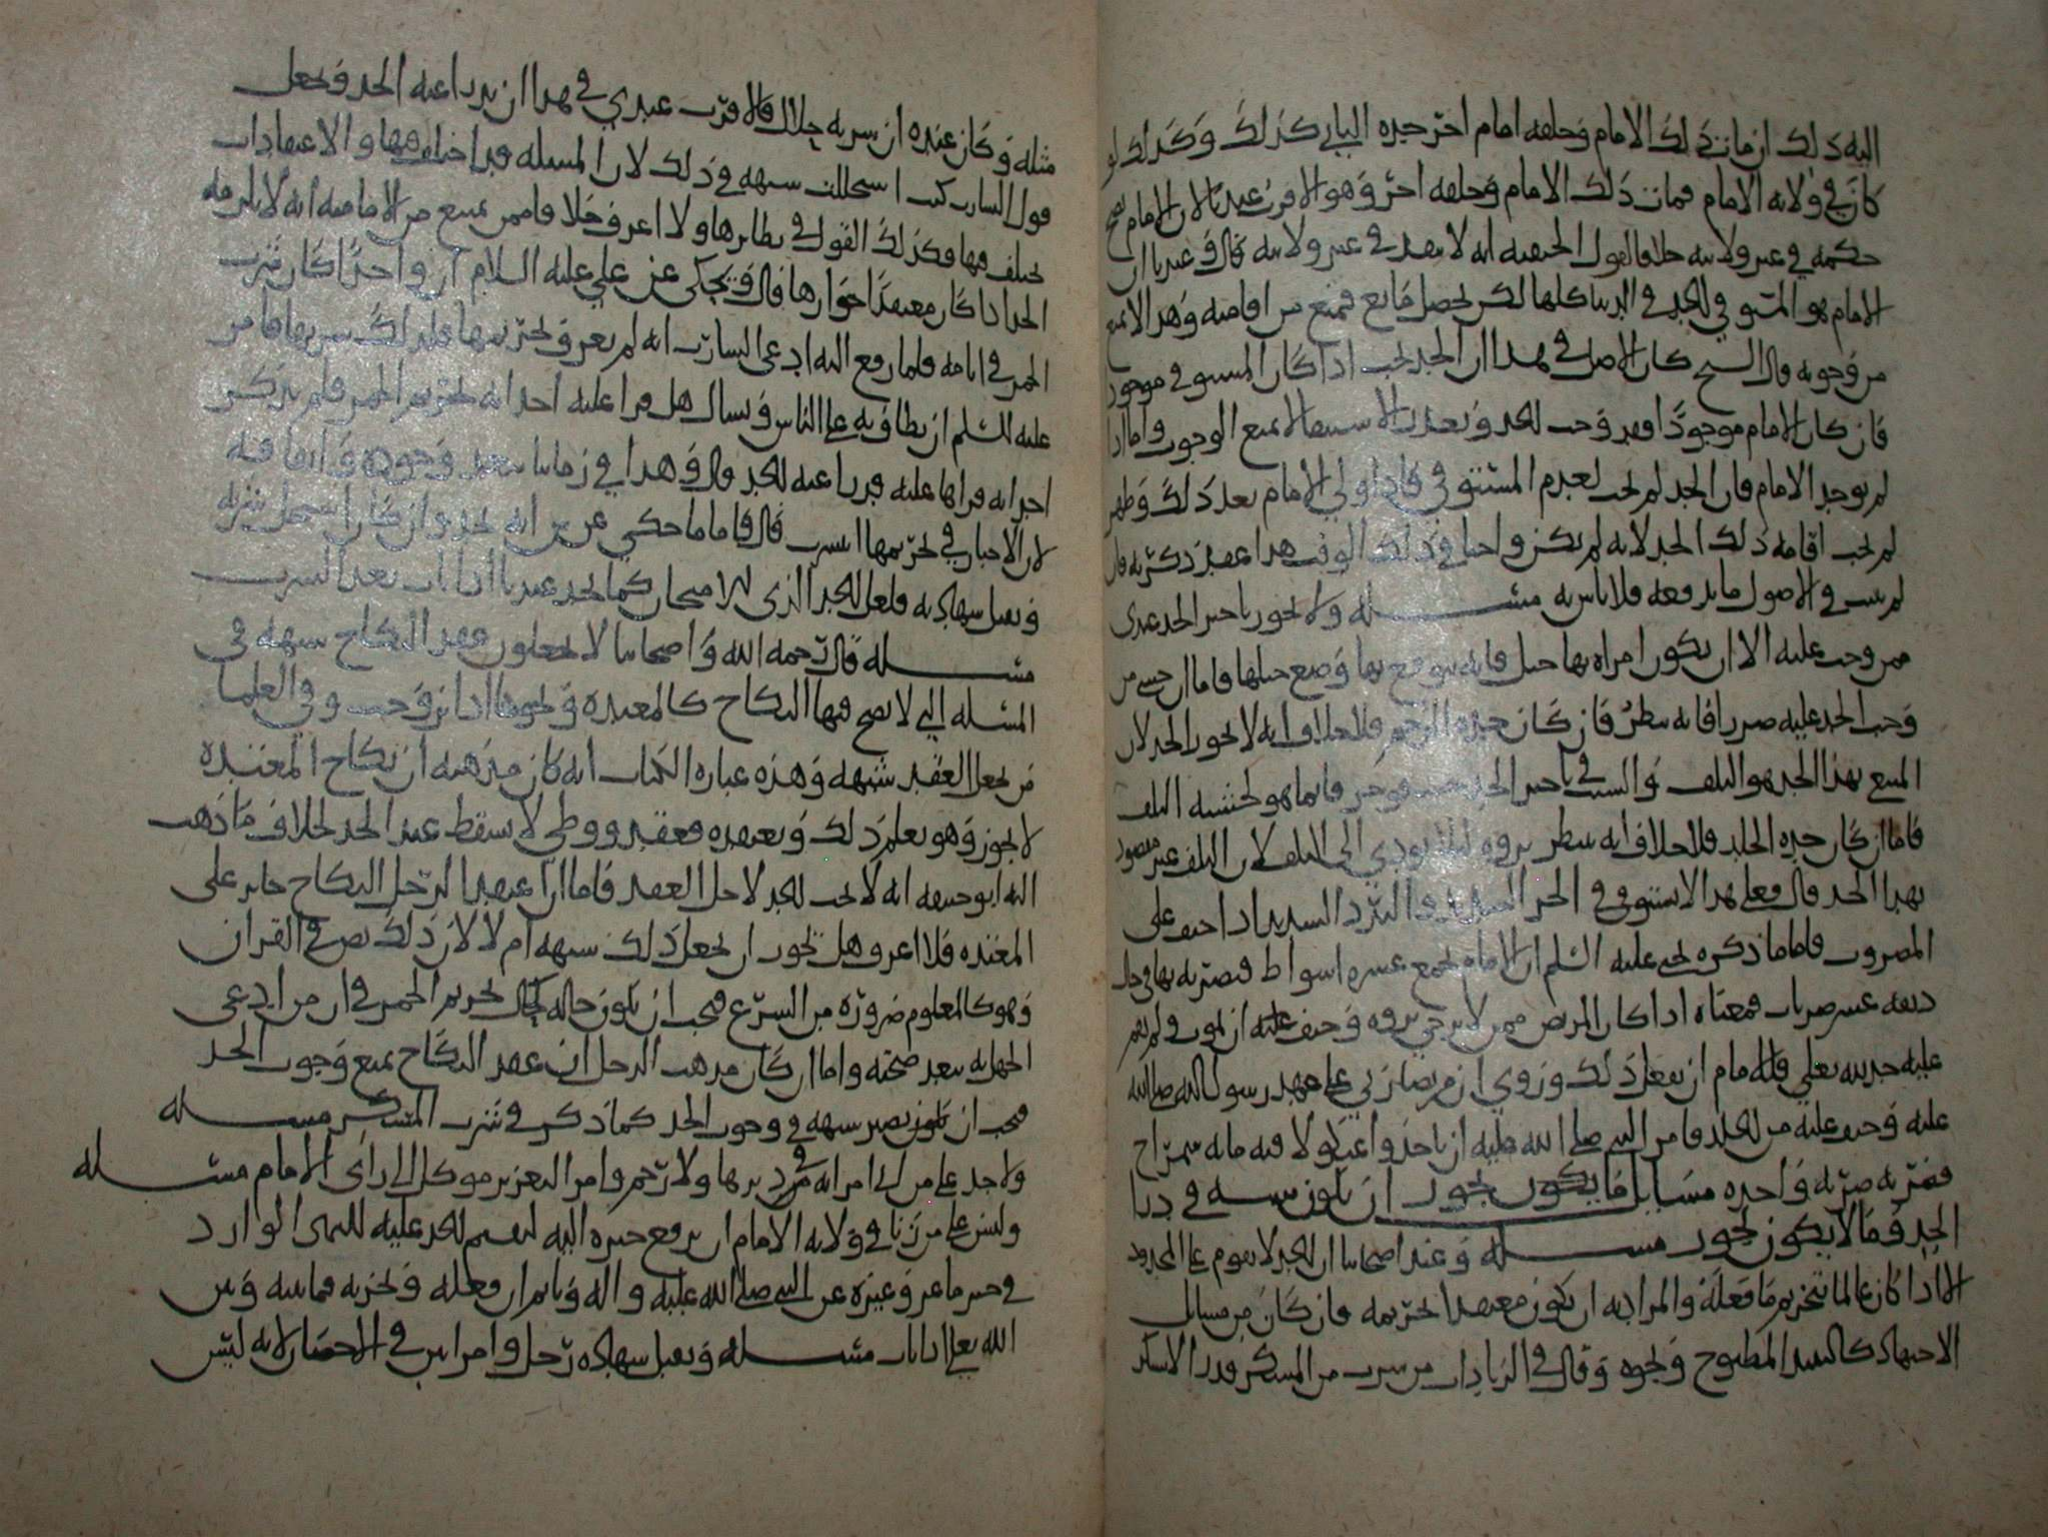 اليه ذلك ان مات ذلك الامام وخلفه امام اخر حده الثاني كذلك وكذلك لو
كان في ولاية الامام فمات ذلك الامام وخلفه اخر وهو الاقرب عندنا لان الامام يصح
حكمه في غير ولايته خلافا لقول الحنفية انه لا ينفذ في غير ولايته قال وعندنا ان
الامام هو المستوفي للحد في الدنيا كلها لكن يحصل مانع فيمنع من اقامته وهذا لا يمنع
من وجوبه قال الشيخ كان الاصل في هذا ان الحد يجب اذا كان المستوفي موجودا
فان كان الامام موجودا فقد وجب الحد وتعذر الاستيفا لا يمنع الوجوب واما اذا
لم يوجد الامام فان الحد لم يجب لعدم المستوفي فاذا ولي الامام بعد ذلك وظهر
لم يجب اقامة ذلك الحد لانه لم يكن واجبا في ذلك الوقت هذا عقد ذكرته فان
لم يثبت في الاصول ما يدفعه فلا باس به مسئلة ولا يجوز تاخير الحد عندي
ممن وجب عليه الا ان يكون امراة بها حبل فانه يتوقع بها وضع حملها فاما ان خشي من
وجب الحد عليه ضررا فانه ينظر فان كان حده الرجم فلا خلاف انه لا يجوز الحد لان
المبتغى بهذا الحد هو التلف والسبب في تاخير الحد فانما هو لخشية التلف
فاما ان كان حده الجلد فلا خلاف انه ينظر بروه لئلا يودي الى التلف لان التلف غير مقصود
بهذا الحد قال فعلى هذا لا يستوفى في الحر الشديد والبرد الشديد اذا خيف على
المضروب فاما ما ذكره يحيى عليه السلم ان الامام يجمع عشرة اسواط فيضربه بها في كل
دفعة عشر ضربات فمعناه اذا كان المريض ممن لا يرجى بروه وخيف عليه ان يموت ولم يقم
عليه حد لله تعالى فللامام ان يفعل ذلك وروي ان مريضا زنى على عهد رسول الله صلى الله
عليه وجب عليه من الجلد فامر النبي صلى الله عليه ان ياخذوا عثكولا فيه مائة شمراخ
فضربه ضربة واحدة مسائل ما يكون يجوز ان يكون شبهة في درا
الحد وما لا يكون يجوز مسئلة وعند اصحابنا ان الحد لا يقوم على المحدود
الا اذا كان عالما بتحريم ما فعله والمراد به ان يكون معتقدا لتحريمه فان كان من مسائل
الاجتهاد كالنبيذ المطبوخ ونحوه وقال في الزيادات من شرب من المسكر قدر الاسكر
مثله وكان عنده ان شربه حلال قال الاقرب عندي في هذا ان يدرا عنه الحد ويجعل
قول الشارب كنت استحللت شبهة في ذلك لان المسئلة قد اختلف فيها والاعتقادات
تختلف فيها وكذلك القول في نظائرها ولا اعرف خلافا ممن يمنع من الامامية انه لا يلزمه
الحد اذا كان معتقدا جوازها قال ويحكى عن علي عليه السلام ان واحدا كان شرب
الخمر في ايامه فلما رفع اليه ادعى الشارب انه لم يعرف تحريمها فلذلك شربها فامر
عليه السلم ان يطاف به على الناس ويسال هل قرا عليه احد اية تحريم الخمر فلم يذكر
احد انه قراها عليه فدرا عنه الحد قال وهذا في زماننا يبعد وجوده وانما فيه
لان الاخبار في تحريمها انتشرت قال فاما ما حكي عن انه يحد وان كان استحل شربه
وتقبل شهادته فلعل الحد الذي للامتحان كما يحد عندنا اذا تاب بعد الشرب
مسئلة قال رحمه الله واصحابنا لا يجعلون عقد النكاح شبهة في
المسئلة التي لا يصح فيها النكاح كالمعتدة ونحوها اذا تزوجت وفي العلما
من يجعل العقد شبهة وهذه عبارة الكتاب انه كان مذهبه ان نكاح المعتدة
لا يجوز وهو يعلم ذلك ويعتقده فعقد ووطي لا يسقط عنه الحد بخلاف ما ذهب
اليه ابو حنيفة انه لا يجب الحد لاجل العقد فاما ان اعتقد الرجل النكاح جائز على
المعتدة فلا اعرف هل يجوز ان يجعل ذلك شبهة ام لا لان ذلك نص في القران
وهو كالمعلوم ضرورة من الشرع فيجب ان يكون حاله كحال تحريم الخمر في ان من ادعى
الجهل به يبعد صحته واما ان كان مذهب الرجل ان عقد النكاح يمنع وجوب الحد
فيجب ان يكون يصير شبهة في وجوب الحد كما ذكر في شرب المسكر مسئلة
ولا حد على من اتى امراته في دبرها ولا رجم وامر التعزير موكل الى راى الامام مسئلة
وليس على من زنا في ولاية الامام ان يرفع خبره اليه ليقيم الحد عليه للنهي الوارد
في خبر ماعز وغيره عن النبي صلى الله عليه واله وياثم ان فعله ويجزيه فيما بينه وبين
الله تعالى اذا تاب مسئلة وتقبل شهادة رجل وامراتين في الاحصان لانه ليس